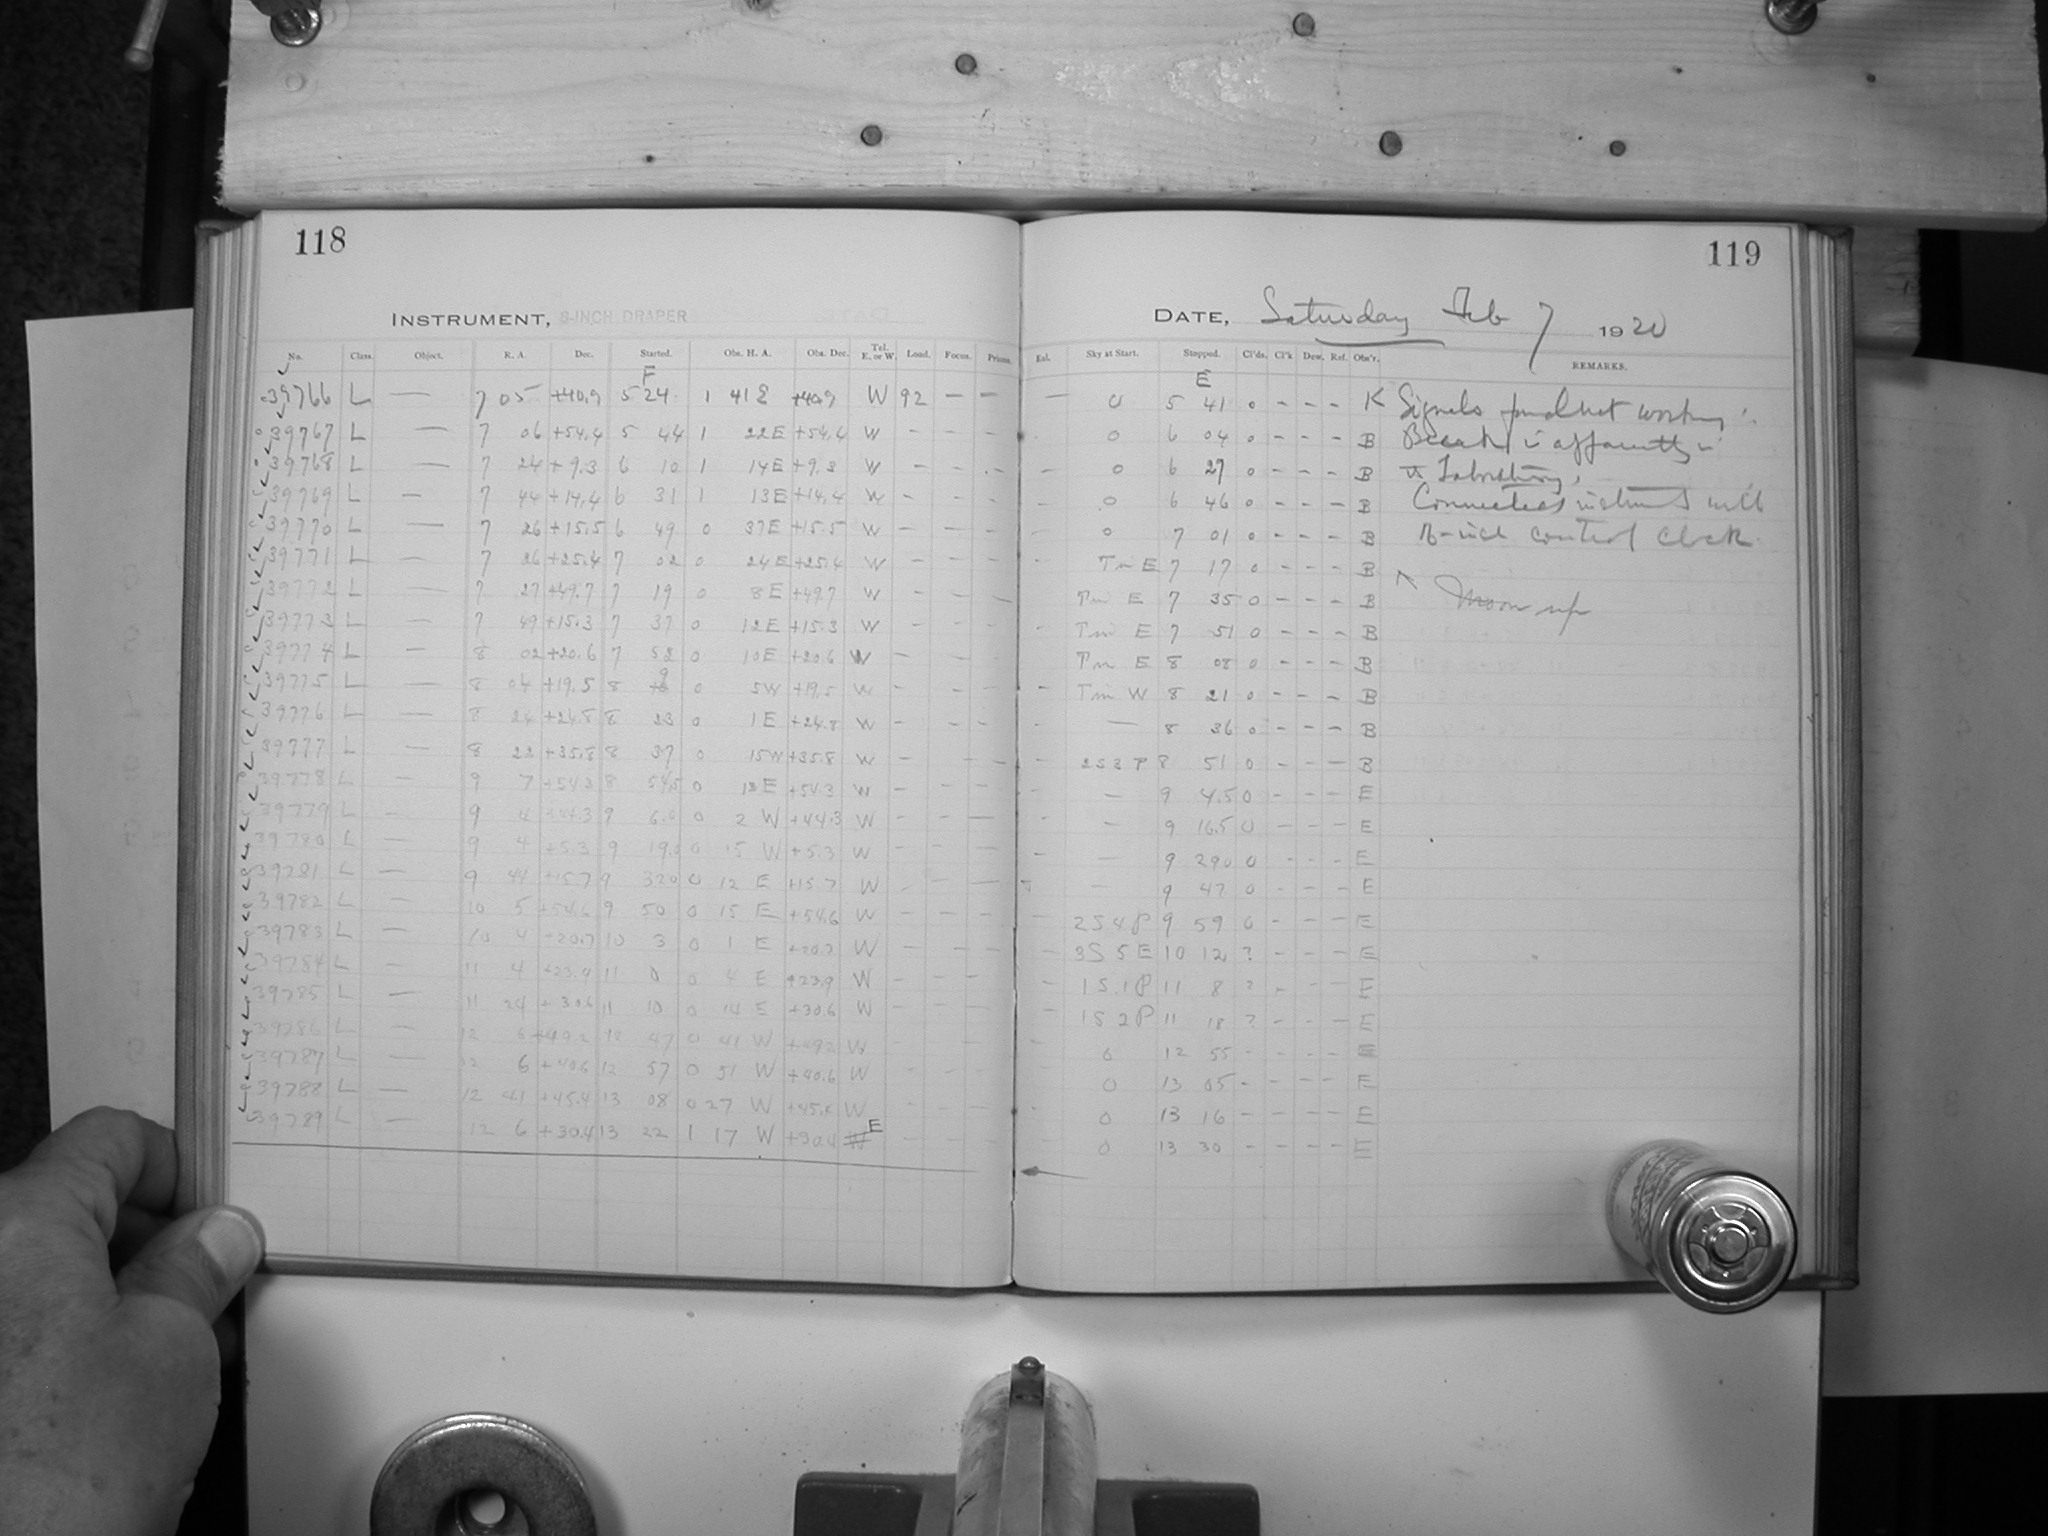 118
119
INSTRUMENT, 8-INCH DRAPER
DATE, Saturday Feb 7 1920
No. Class. Object. R. A. Dec. Started. Obs. H. A. Obs. Dec. Tel. E. or W. Load. Focus. Prisms. Exl. Sky at Start. Stopped. Cl'ds. Cl'k Dew. Ref. Obs'r. REMARKS.
F E
39766 L — 7 05 +40.9 5 24 1 41 E +40.9 W 92 — — — 0 5 41 0 - - - K Signals found not working.
39767 L — 7 06 +54.4 5 44 1 22 E +54.4 W - - - 0 6 04 0 - - - B Break is apparently in
39768 L — 7 24 +9.3 6 10 1 14 E +9.3 W - - - - 0 6 27 0 - - - B Laboratory.
39769 L — 7 44 +14.4 6 31 1 13 E +14.4 W - - - - 0 6 46 0 - - - B Connected with
39770 L — 7 26 +15.5 6 49 0 37 E +15.5 W - - - - 0 7 01 0 - - - B control clock.
39771 L — 7 26 +25.4 7 02 0 24 E +25.4 W - - - - Tm E 7 17 0 - - - B
39772 L — 7 27 +49.7 7 19 0 8 E +49.7 W - - - Tm E 7 35 0 - - - B Moon up
39773 L — 7 49 +15.3 7 37 0 12 E +15.3 W - - - Tm E 7 51 0 - - - B
39774 L — 8 02 +20.6 7 52 0 10 E +20.6 W - - - Tm E 8 08 0 - - - B
39775 L — 8 04 +19.5 8 9 0 5 W +19.5 W - - - - Tm W 8 21 0 - - - B
39776 L — 8 24 +24.8 8 23 0 1 E +24.8 W - - - - — 8 36 0 - - - B
39777 L — 8 22 +35.8 8 37 0 15 W +35.8 W - - - - 2S3P 8 51 0 - - - B
39778 L — 9 7 +54.3 8 54.5 0 12 E +54.3 W - - - — 9 4.5 0 - - - E
39779 L — 9 4 +44.3 9 6.0 0 2 W +44.3 W - - - — 9 16.5 0 - - - E
39780 L — 9 4 +5.3 9 19.0 0 15 W +5.3 W - - - - — 9 29.0 0 - - - E
39781 L — 9 44 +15.7 9 32.0 0 12 E +15.7 W - - - — 9 47 0 - - - E
39782 L — 10 5 +54.6 9 50 0 15 E +54.6 W - - - - 2S4P 9 59 0 - - - E
39783 L — 10 4 +20.7 10 3 0 1 E +20.7 W - - - - 3S5E 10 12 ? - - - E
39784 L — 11 4 +23.9 11 0 0 4 E +23.9 W - - - - 1S.1P 11 8 ? - - - E
39785 L — 11 24 +30.6 11 10 0 14 E +30.6 W - - - - 1S2P 11 18 ? - - - E
39786 L — 12 6 +49.2 12 47 0 41 W +49.2 W - - - - 0 12 55 - - - - E
39787 L — 12 6 +40.6 12 57 0 51 W +40.6 W - - - 0 13 05 - - - - E
39788 L — 12 41 +45.4 13 08 0 27 W +45.4 W - - - - 0 13 16 - - - - E
39789 L — 12 6 +30.4 13 22 1 17 W +30.4 E - - - 0 13 30 - - - - E